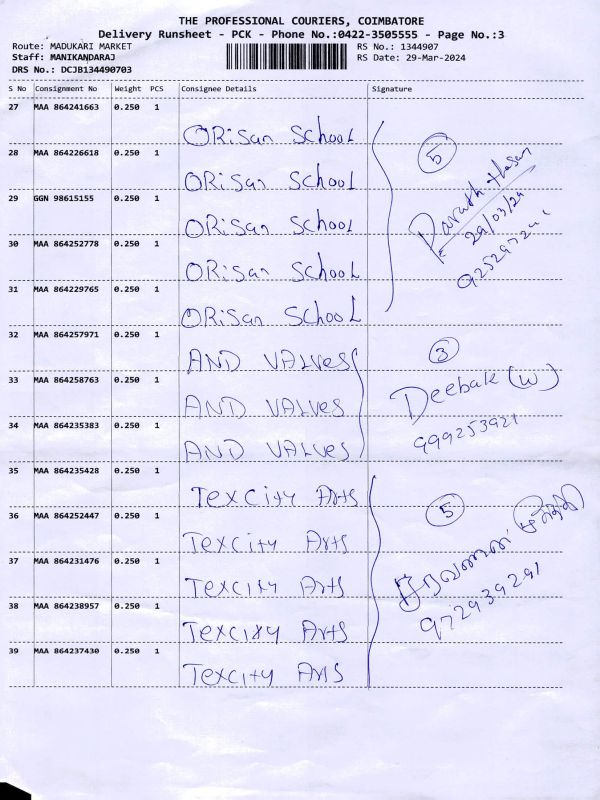 THE PROFESSIONAL COURIERS, COIMBATORE
Delivery Runsheet - PCK - Phone No.:0422-3505555 - Page No.:3
Route: MADUKARI MARKET
Staff: MANIKANDARAJ
DRS No.: DCJB134490703
RS No.: 1344907
RS Date: 29-Mar-2024
S No Consignment No Weight PCS Consignee Details Signature
27 MAA 864241663 0.250 1 ORiSan School
28 MAA 864226618 0.250 1 ORiSan School
29 GGN 98615155 0.250 1 ORiSan School
30 MAA 864252778 0.250 1 ORiSan School
31 MAA 864229765 0.250 1 ORiSan School
5
29/03/24
32 MAA 864257971 0.250 1 AND VALVES
33 MAA 864258763 0.250 1 AND VALVES
34 MAA 864235383 0.250 1 AND VALVES
3
Deebak (W)
999253921
35 MAA 864235428 0.250 1 Texcity Arts
36 MAA 864252447 0.250 1 Texcity Arts
37 MAA 864231476 0.250 1 Texcity Arts
38 MAA 864238957 0.250 1 Texcity Arts
39 MAA 864237430 0.250 1 Texcity Arts
5
சரவணன்
972939291